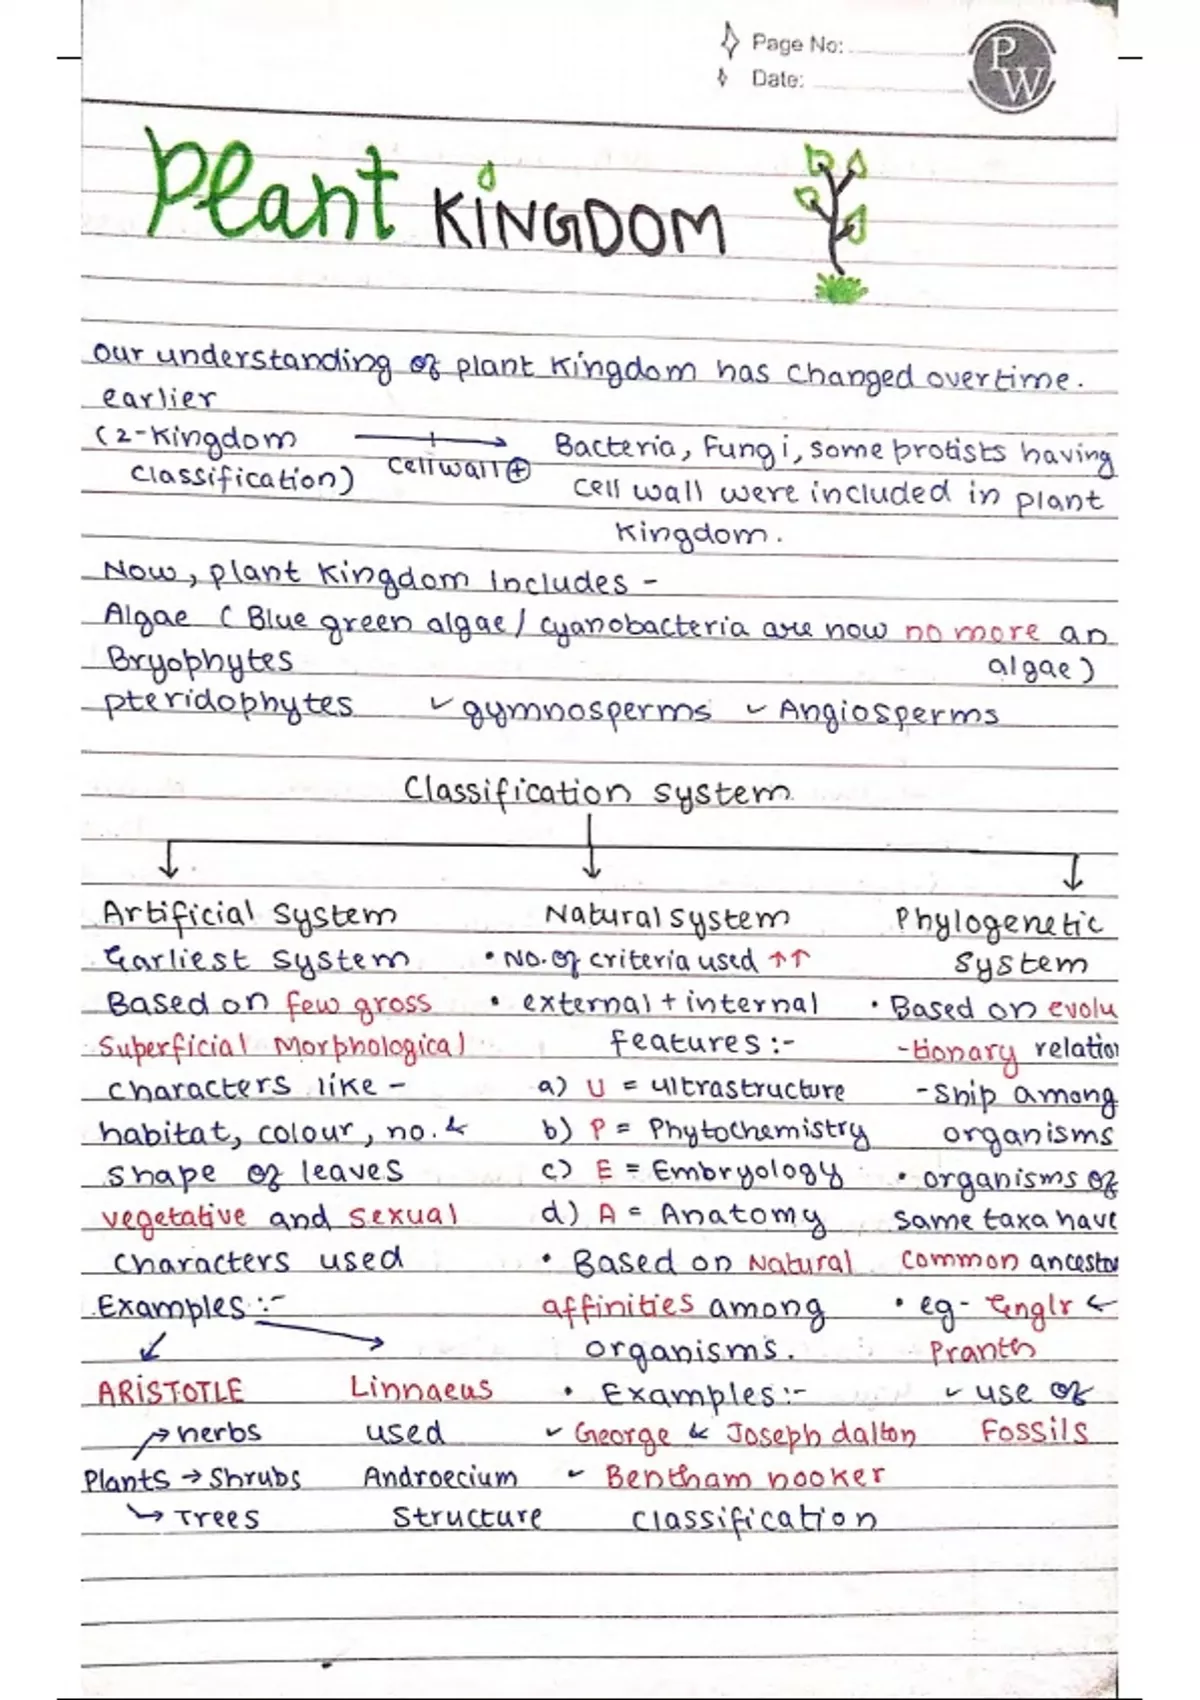 Page No:
Date:
PW
Plant KINGDOM
our understanding of plant Kingdom has changed overtime.
earlier
(2-Kingdom classification) → cell wall ⊕
Bacteria, Fungi, some protists having
cell wall were included in plant
Kingdom.
Now, plant Kingdom Includes -
Algae ( Blue green algae / cyanobacteria are now no more an
algae)
Bryophytes
pteridophytes ✓ gymnosperms ✓ Angiosperms
Classification system
Artificial System
Earliest system
Based on few gross
Superficial Morphological
characters like -
habitat, colour, no. &
shape of leaves
vegetative and sexual
characters used
Examples :-
ARISTOTLE
Plants → herbs
→ Shrubs
→ Trees
Linnaeus
used
Androecium
structure
Natural system
• No. of criteria used ↑↑
• external + internal
features :-
a) U = ultrastructure
b) P = Phytochemistry
c) E = Embryology
d) A = Anatomy
• Based on Natural
affinities among
organisms.
• Examples :-
✓ George & Joseph dalton
✓ Bentham hooker
classification
Phylogenetic
system
• Based on evolu
-tionary relation
-ship among
organisms
• organisms of
same taxa have
common ancestor
• eg- Englr &
Pranth
✓ use of
Fossils